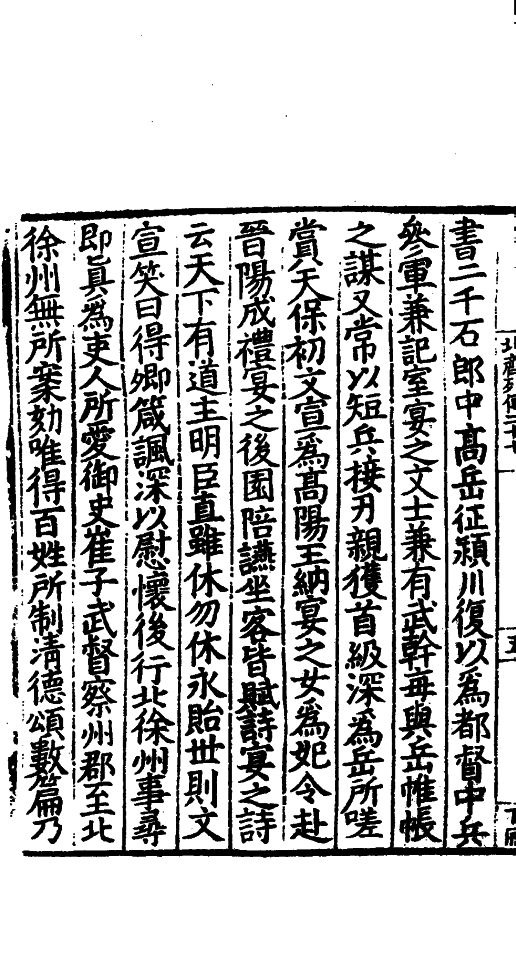 北齊列傳三十七
五
書二千石郎中髙岳征潁川復以爲都督中兵
參軍兼記室宴之文士兼有武幹每與岳帷帳
之謀又常以短兵接刃親獲首級深爲岳所嗟
賞天保初文宣爲髙陽王納宴之女爲妃令赴
晉陽成禮宴之後園陪讌坐客皆賦詩宴之詩
云天下有道主明臣直雖休勿休永貽世則文
宣笑曰得卿箴諷深以慰懷後行北徐州事尋
即眞爲吏人所愛御史崔子武督察州郡至北
徐州無所案劾唯得百姓所制清德頌數篇乃